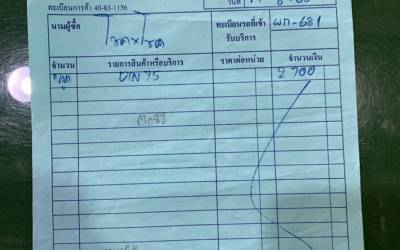 ทะเบียนการค้า 40-83-1156
วันที่
นามผู้ซื้อ โชคxโชค ทะเบียนรถที่เข้ารับบริการ ผก-681
จำนวน รายการสินค้าหรือบริการ ราคาต่อหน่วย จำนวนเงิน
ลูก DIN 75 2700